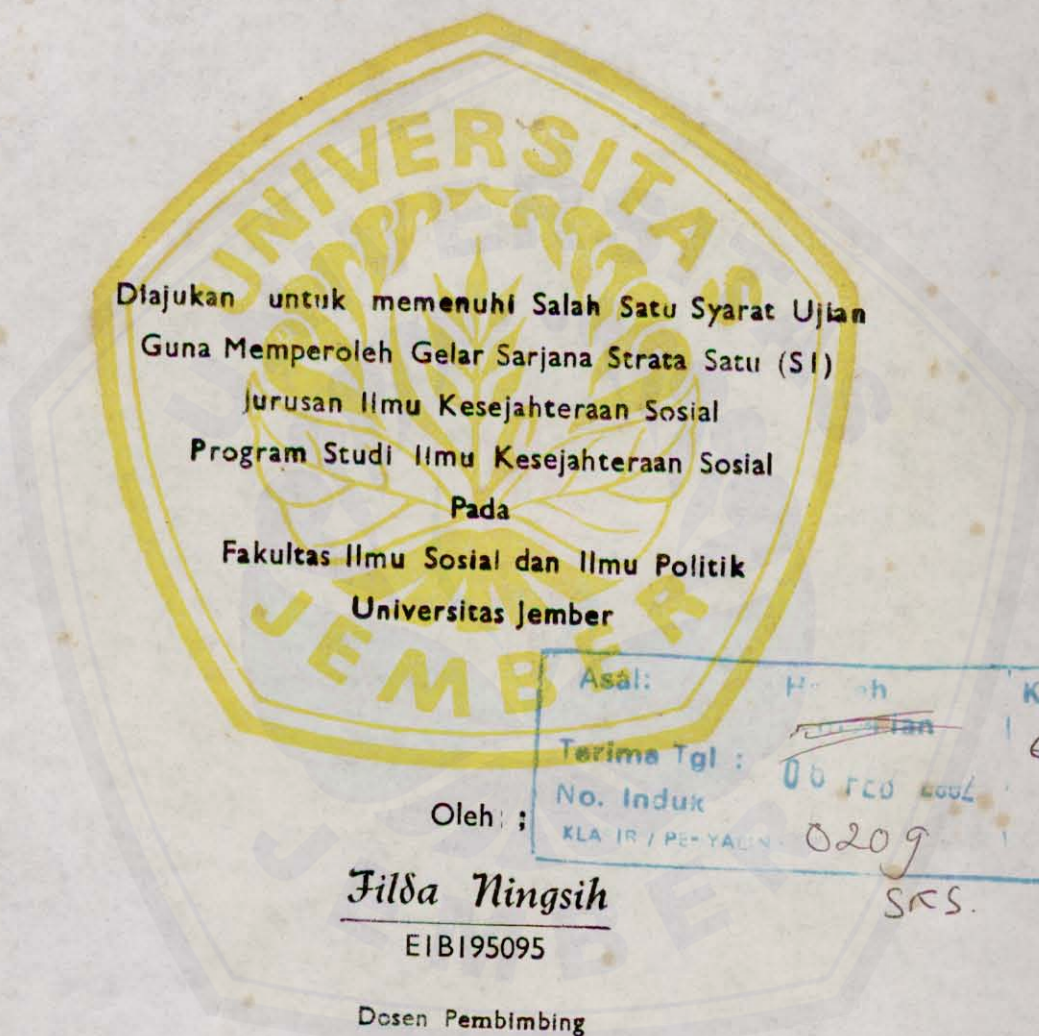 UNIVERSITAS
JEMBER
Diajukan untuk memenuhi Salah Satu Syarat Ujian
Guna Memperoleh Gelar Sarjana Strata Satu (S1)
Jurusan Ilmu Kesejahteraan Sosial
Program Studi Ilmu Kesejahteraan Sosial
Pada
Fakultas Ilmu Sosial dan Ilmu Politik
Universitas Jember
Asal:
Terima Tgl :
No. Induk
0209
SKS.
Oleh :
Filda Ningsih
E1B195095
Dosen Pembimbing